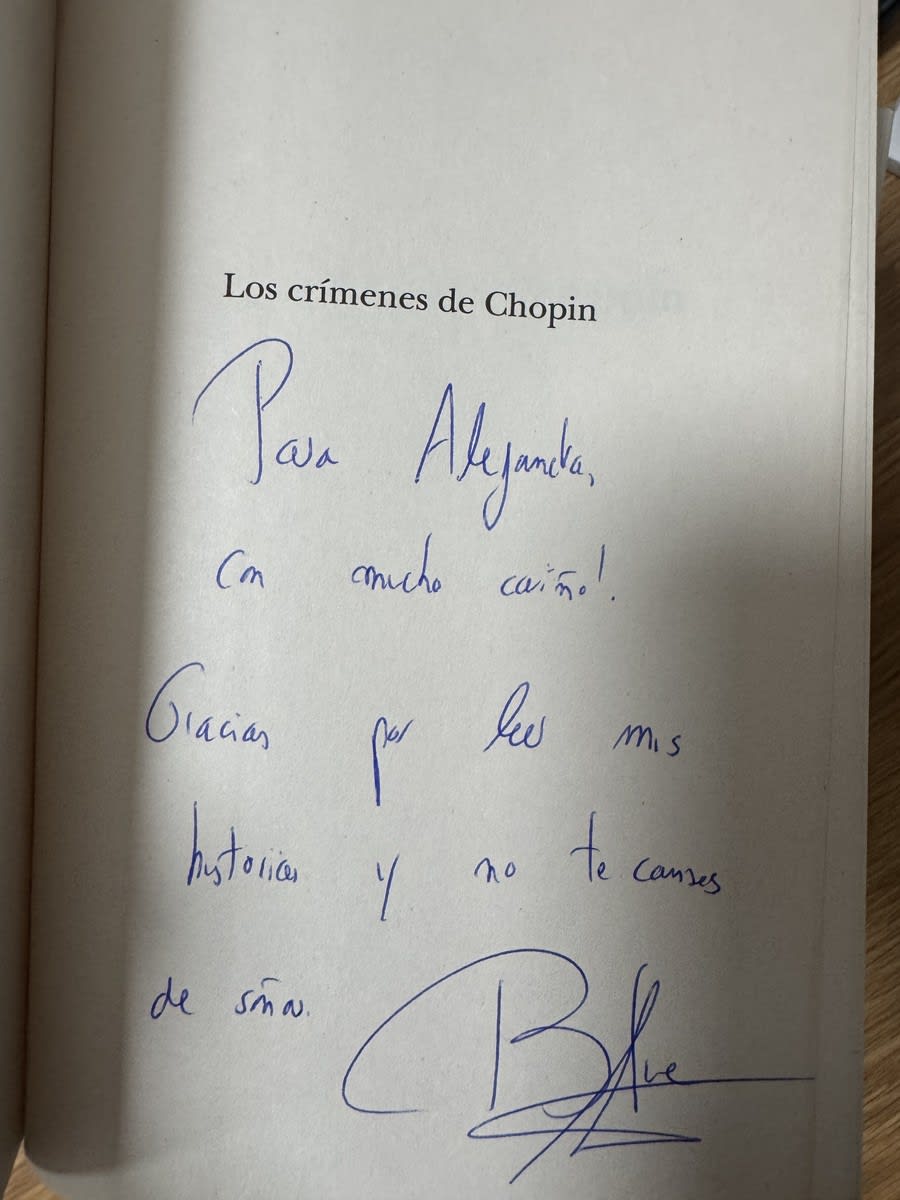 Los crímenes de Chopin
Para Alejandra,
con mucho cariño!.
Gracias por leer mis
historias y no te canses
de soñar.